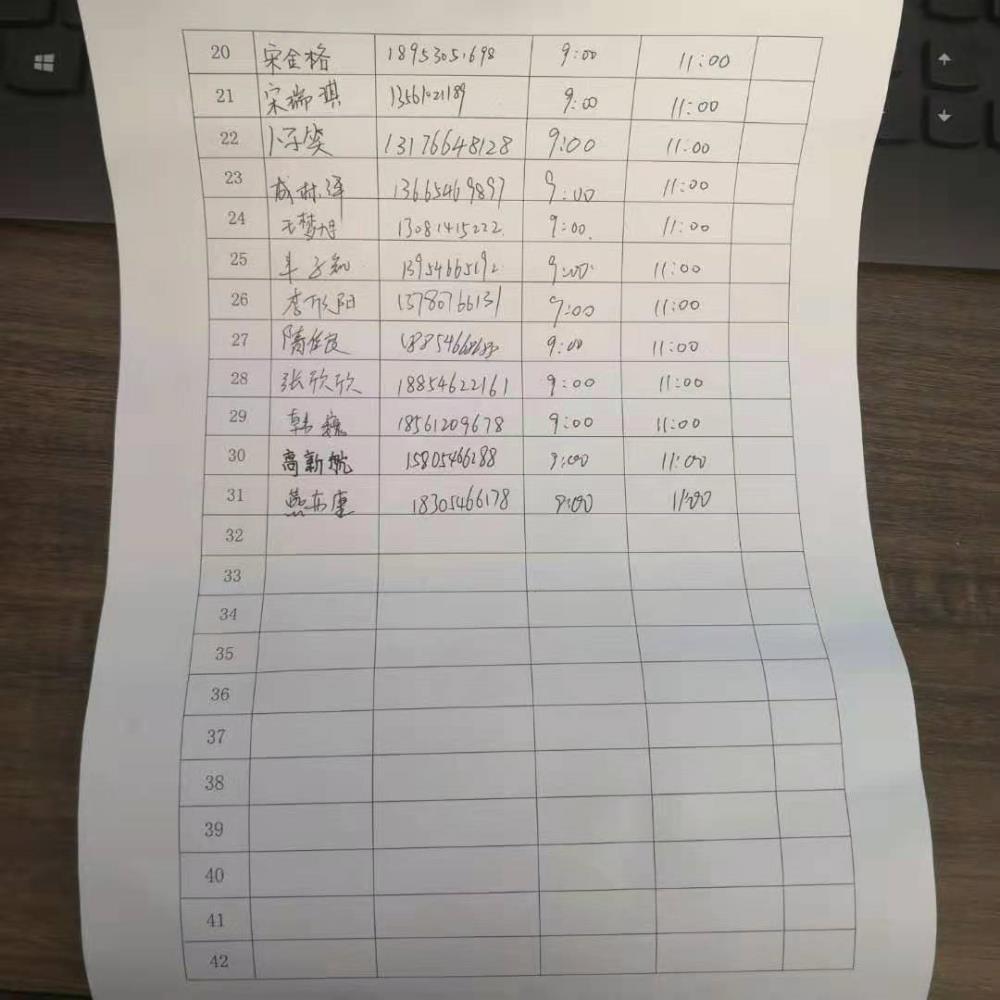 20 宋金格 18953051698 9:00 11:00
21 宋瑞琪 13561021189 9:00 11:00
22 卜子奕 13176648128 9:00 11:00
23 成林泽 13665469897 9:00 11:00
24 王梦旭 13081415222 9:00 11:00
25 13954665192 9:00 11:00
26 李欣阳 13780766131 9:00 11:00
27 隋佳良 9:00 11:00
28 张欣欣 18854622161 9:00 11:00
29 韩巍 18561209678 9:00 11:00
30 高新航 15805466288 9:00 11:00
31 18305466178 9:00 11:00
32
33
34
35
36
37
38
39
40
41
42